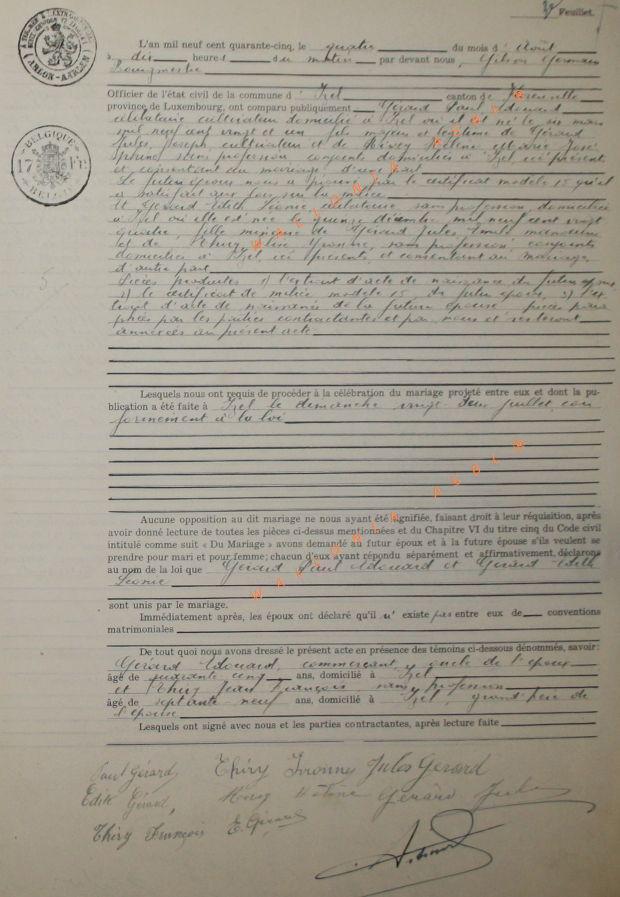 2e Feuillet.
L'an mil neuf cent quarante-cinq, le quatre du mois d'Août
à dix heures du matin par devant nous, Gilson Germain
Bourgmestre
Officier de l'état civil de la commune d'Izel canton de Florenville
province de Luxembourg, ont comparu publiquement Gérard Paul Edouard
célibataire cultivateur domicilié à Izel où il est né le six mars
mil neuf cent vingt et un fils majeur et légitime de Gérard
Jules Joseph, cultivateur et de Hélène Marie José
sans profession, conjoints domiciliés à Izel ici présents
et consentant au mariage, d'une part
Le futur époux nous a prouvé par le certificat modèle 15 qu'il
a satisfait aux lois sur la milice
Et Gérard Edith Léonie célibataire, sans profession, domiciliée
à Izel où elle est née le quinze décembre mil neuf cent vingt
quatre, fille mineure de Gérard Jules Emile
et de Thiry Yvonne, sans profession conjoints
domiciliés à Izel, ici présents, et consentant au mariage
d'autre part
Pièces produites 1) l'extrait d'acte de naissance du futur époux
2) le certificat de milice modèle 15 du futur époux, 3) l'ex
trait d'acte de naissance de la future épouse pièces para
phées par les parties contractantes et par nous et resteront
annexées au présent acte
Lesquels nous ont requis de procéder à la célébration du mariage projeté entre eux et dont la pu-
blication a été faite à Izel le dimanche vingt deux juillet, con
formément à la loi
Aucune opposition au dit mariage ne nous ayant été signifiée, faisant droit à leur réquisition, après
avoir donné lecture de toutes les pièces ci-dessus mentionnées et du Chapitre VI du titre cinq du Code civil
intitulé comme suit « Du Mariage » avons demandé au futur époux et à la future épouse s'ils veulent se
prendre pour mari et pour femme; chacun d'eux ayant répondu séparément et affirmativement, déclarons
au nom de la loi que Gérard Paul Edouard et Gérard Edith
Léonie
sont unis par le mariage.
Immédiatement après, les époux ont déclaré qu'il n'existe pas entre eux de conventions
matrimoniales
De tout quoi nous avons dressé le présent acte en présence des témoins ci-dessous dénommés, savoir:
Gérard Edouard, commerçant, oncle de l'époux
âgé de quarante cinq ans, domicilié à Izel
et Thiry Jean François sans profession
âgé de septante neuf ans, domicilié à Izel, grand-père de
l'épouse
Lesquels ont signé avec nous et les parties contractantes, après lecture faite
Paul Gérard, Thiry Yvonne Jules Gerard
Edith Gérard, Hélène Gérard Jules
Thiry François E. Gérard